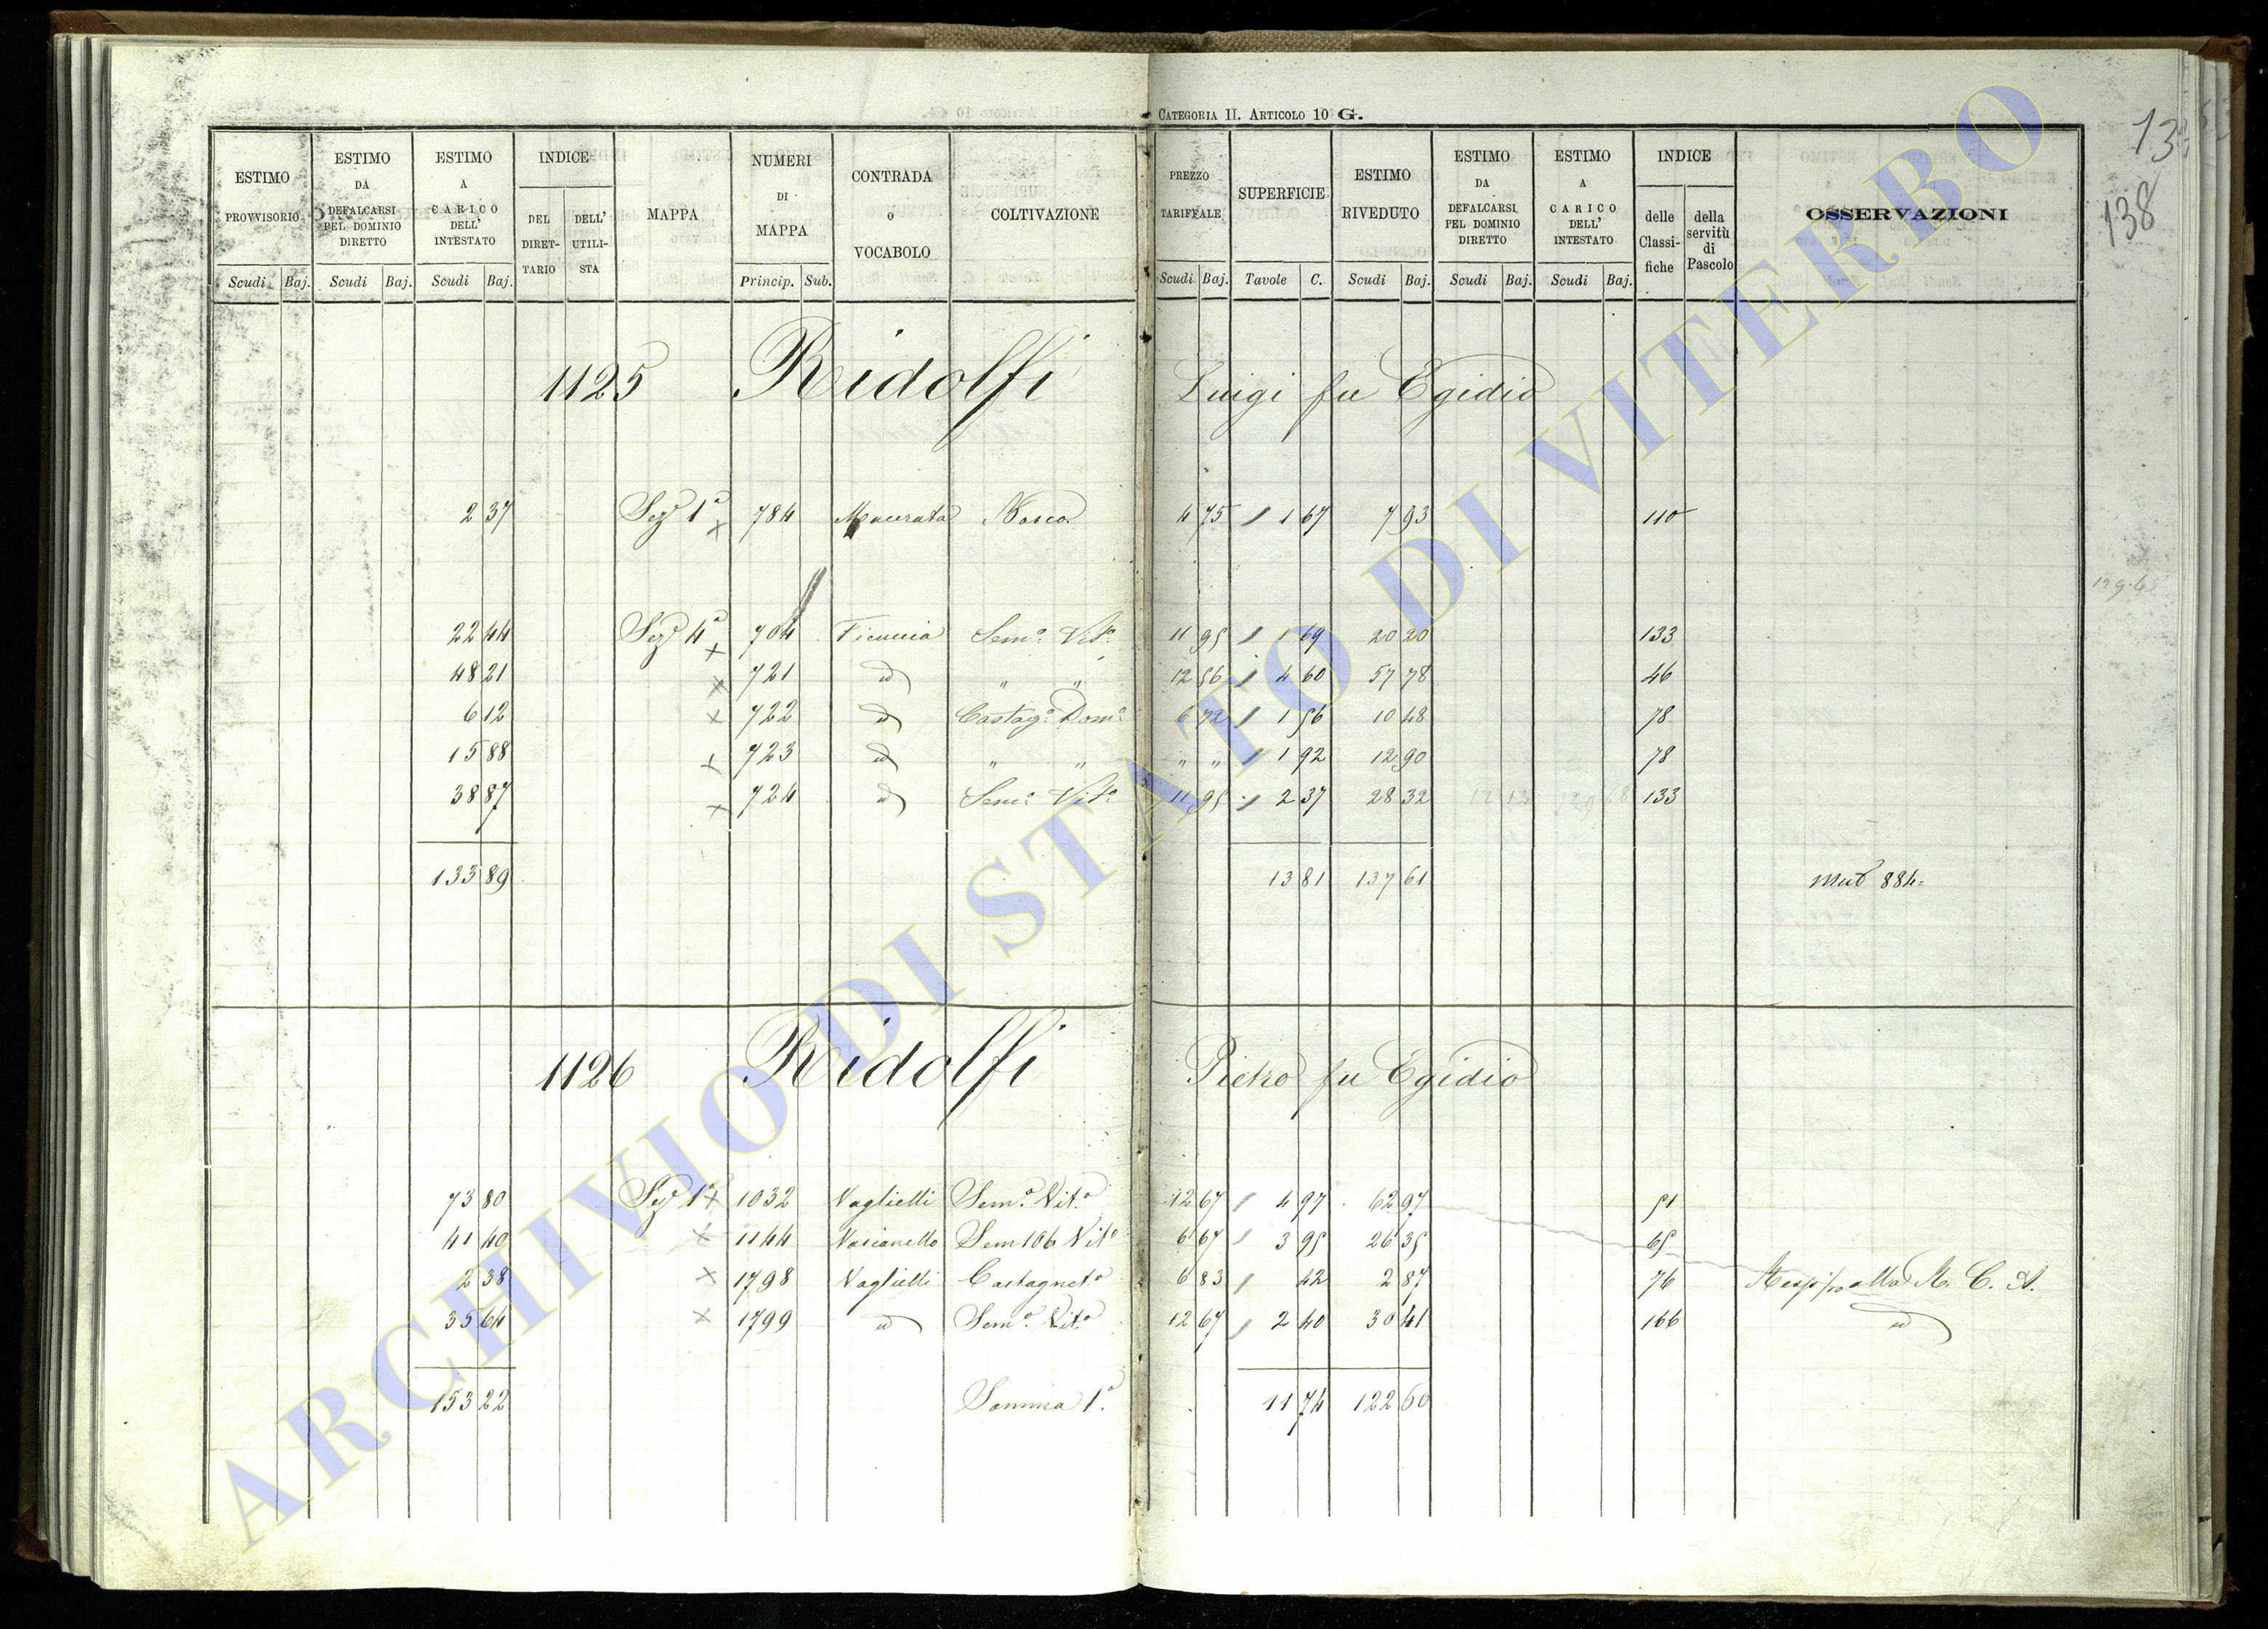 CATEGORIA II. ARTICOLO 10 G.
138
ESTIMO PROVVISORIO | ESTIMO DA DEFALCARSI PEL DOMINIO DIRETTO | ESTIMO A CARICO DELL' INTESTATO | INDICE DEL DIRETTARIO | DELL' UTILISTA | MAPPA | NUMERI DI MAPPA | CONTRADA O VOCABOLO | COLTIVAZIONE | PREZZO TARIFFALE | SUPERFICIE | ESTIMO RIVEDUTO | ESTIMO DA DEFALCARSI PEL DOMINIO DIRETTO | ESTIMO A CARICO DELL' INTESTATO | INDICE delle Classifiche | della servitù di Pascolo | OSSERVAZIONI
Scudi Baj. Scudi Baj. Scudi Baj. Princip. Sub. Scudi Baj. Tavole C. Scudi Baj. Scudi Baj. Scudi Baj.
1125 Ridolfi Luigi fu Egidio
2 37 Sez. 1ª x 784 Macerata 4 75 1 67 7 93 110
22 44 Sez. 4ª x 704 Ficuccia Sem.º Vit.º 11 95 1 69 20 20 133
48 21 x 721 id " " 12 56 4 60 57 78 46
6 12 x 722 id Castag.º Dom.º 6 72 1 56 10 48 78
15 88 x 723 id " " " " 1 92 12 90 78
38 87 x 724 id Sem.º Vit.º 11 95 2 37 28 32 133
133 89 13 81 137 61 884
1126 Ridolfi Pietro fu Egidio
73 80 Sez. 1ª x 1032 Vaglielli Sem.º Vit.º 12 67 4 97 62 97 51
41 40 x 1144 Vasianello Sem Vit.º 6 67 3 95 26 35 65
2 38 x 1798 Vaglielli Castagneto 6 83 42 2 87 76 alla R. C. A.
35 64 x 1799 id Sem.º Vit.º 12 67 2 40 30 41 166 id
153 22 Somma 1ª 11 74 122 60
ARCHIVIO DI STATO DI VITERBO